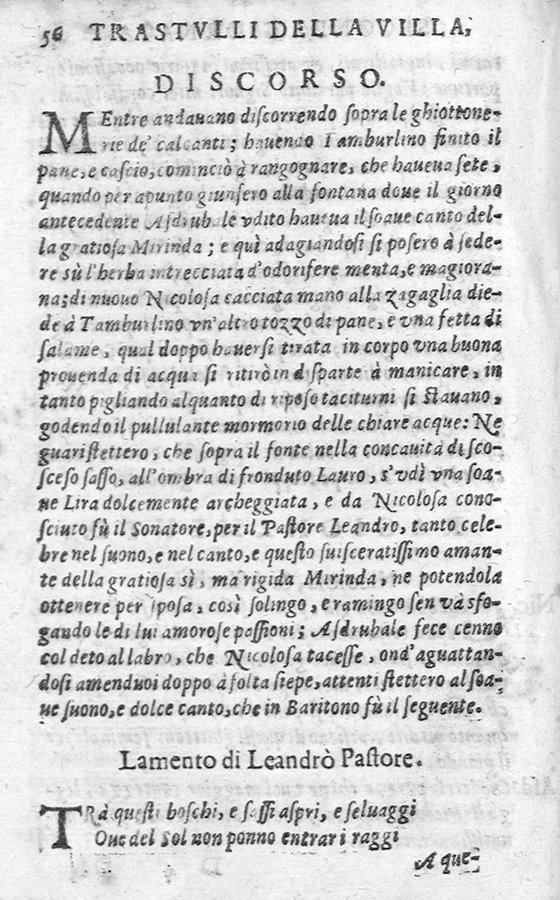 56 TRASTVLLI DELLA VILLA,
DISCORSO.
MEntre andauano discorrendo sopra le ghiottone-
rie de' calcanti; hauendo Tamburlino finito il
pane, e cascio, cominciò à rangognare, che haueua sete,
quando per apunto giunsero alla fontana doue il giorno
antecedente Asdrubale vdito haueua il soaue canto del-
la gratiosa Mirinda; e quì adagiandosi si posero à sede-
re sù l'herba intrecciata d'odorifere menta, e magiora-
na; di nuouo Nicolosa cacciata mano alla zagaglia die-
de à Tamburlino vn'altro tozzo di pane, e vna fetta di
salame, qual doppo hauersi tirata in corpo vna buona
prouenda di acqua si ritirò in disparte à manicare, in
tanto pigliando alquanto di riposo taciturni si stauano,
godendo il pullulante mormorio delle chiare acque: Ne
guari stettero, che sopra il fonte nella concauità di sco-
sceso sasso, all'ombra di fronduto Lauro, s'vdì vna soa-
ue Lira dolcemente archeggiata, e da Nicolosa cono-
sciuto fù il Sonatore, per il Pastore Leandro, tanto cele-
bre nel suono, e nel canto, e questo suisceratissimo aman-
te della gratiosa sì, ma rigida Mirinda, ne potendola
ottenere per sposa, così solingo, e ramingo sen và sfo-
gando le di lui amorose passioni; Asdrubale fece cenno
col deto al labro, che Nicolosa tacesse, ond'aguattan-
dosi amenduoi doppo à folta siepe, attenti stettero al soa-
ue suono, e dolce canto, che in Baritono fù il seguente.
Lamento di Leandrò Pastore.
TRà questi boschi, e sassi aspri, e seluaggi
Oue del Sol non ponno entrar i raggi
A que-